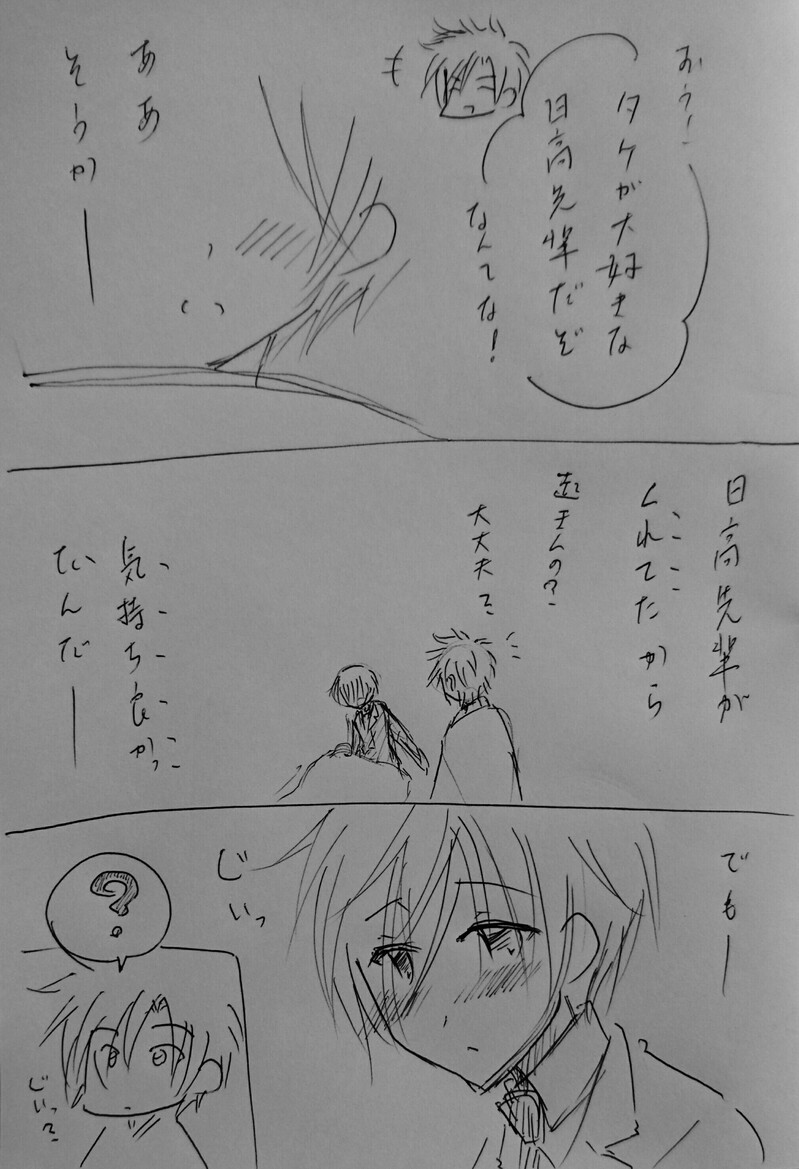 おう!
タケが大好きな
日高先輩だぞ
なんてな!
も
ああ
そうか
日高先輩が
くれてたから
起きんの?
大丈夫?
気持ち良かっ
たんだ
でも
じいっ
?
じいって